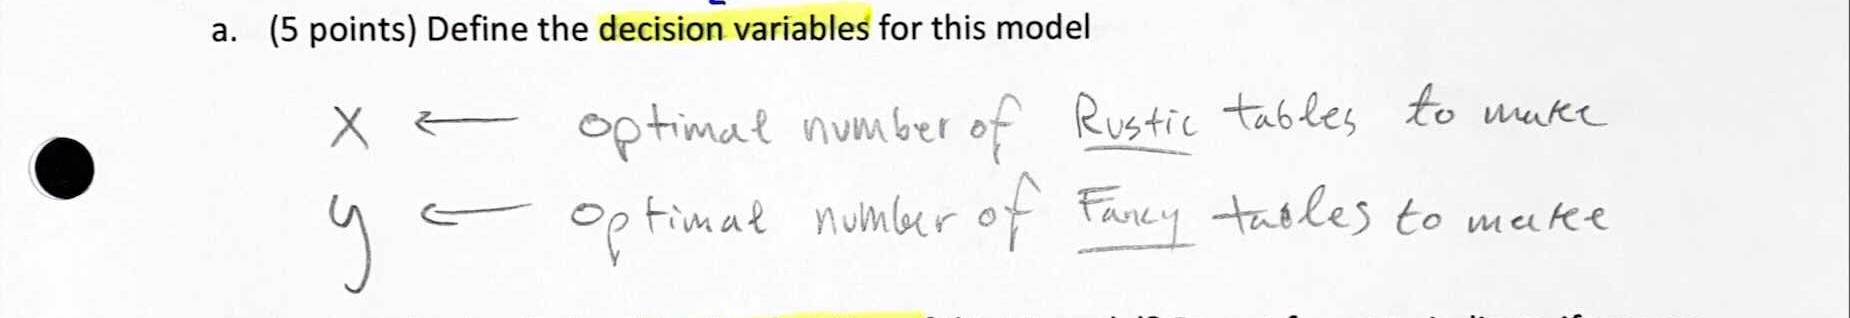 a. (5 points) Define the decision variables for this model
X ← optimal number of Rustic tables to make
y ← optimal number of Fancy tables to make